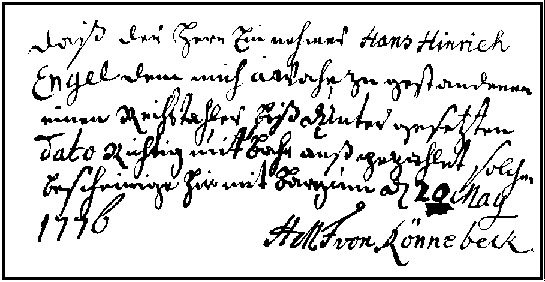 daß der Herr Einnehmer Hans Hinrich
Engel dem mich zu gestandenen
einen Reichsthaler biß unter gesetzten
Dato Richtig mit auß gezahlet solches
bescheinige hir mit d 20 May
1776
von Könnebeck